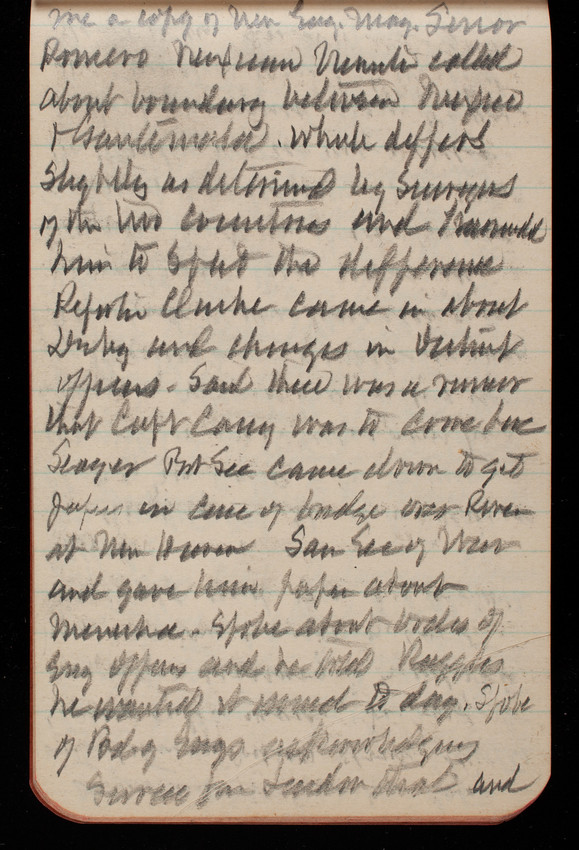 me a copy of New Eng. Mag. Senor
Romero Mexican called
about boundary between Mexico
& Guatemala. Whole differs
Slightly as determined by Surveys
of the two countries and
him to Split the difference
Clarke came in about
and changes in District
officers. Said there was a rumor
that Capt Casey was to come
Sec came down to get
papers in case of bridge over River
at New Haven Saw Sec of War
and gave him paper about
Spoke about
Eng Officers and he told Ruggles
he wanted it issued to day. Spoke
of Bd of Engs acknowledging
and